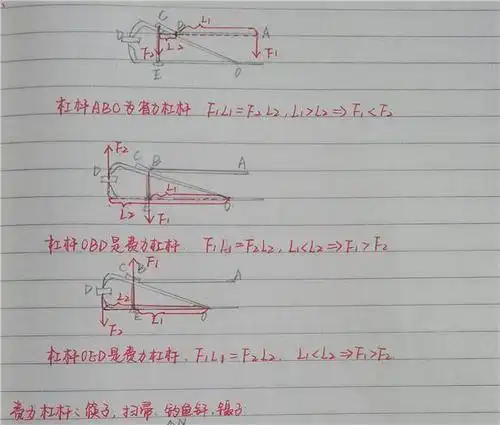 C B L₁ A
D F₂ L₂ F₁
E O
杠杆ABC为省力杠杆 F₁L₁=F₂L₂, L₁>L₂⇒F₁<F₂
F₂
D C B A
L₁
L₂ F₁ O
杠杆OBD是费力杠杆 F₁L₁=F₂L₂, L₁<L₂⇒F₁>F₂
F₁
C B A
D L₂
F₂ E L₁ O
杠杆OED是费力杠杆, F₁L₁=F₂L₂. L₁<L₂⇒F₁>F₂
费力杠杆: 筷子, 扫帚, 钓鱼竿, 镊子